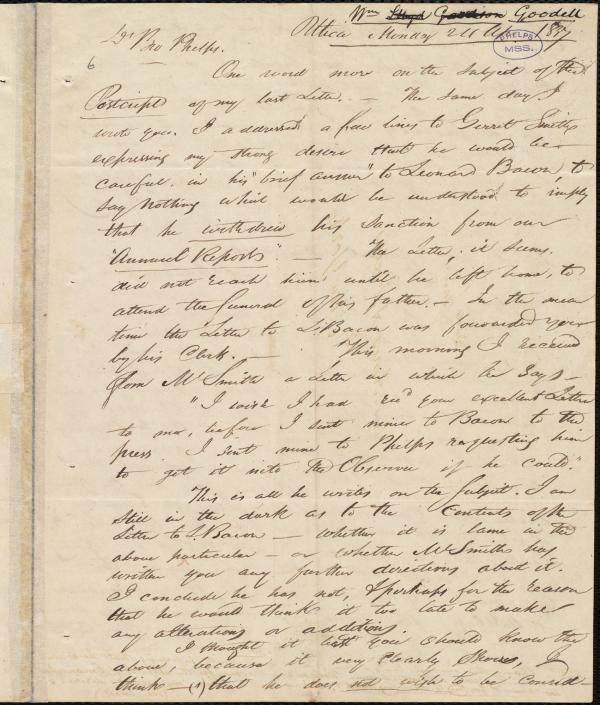 Wm Lloyd Garrison Goodell
Utica Monday 24 Ap. 1837
PHELPS MSS.
Dr Bro Phelps.
6
One word more on the subject of the
Postscript of my last Letter. — The same day I
wrote you. I addressed a few lines to Gerrit Smith
expressing my strong desire that he would be
careful, in his "brief answer" to Leonard Bacon, to
say nothing which would be understood to imply
that he withdrew his sanction from our
"Annual Reports". — The Letter, it seems,
did not reach him until he left home, to
attend the funeral of his father. — In the mean
time the Letter to L Bacon was forwarded you
by his Clerk. — This morning I received
from Mr Smith a Letter in which he says —
"I wish I had recd your excellent Letter
to me, before I sent mine to Bacon to the
press. I sent mine to Phelps requesting him
to get it into the Observer if he could."
This is all he writes on the subject. I am
still in the dark as to the Contents of the
Letter to L. Bacon — whether it is lame in the
above particular — or whether Mr Smith has
written you any further directions about it.
I conclude he has not, & perhaps for the reason
that he would think it too late to make
any alterations or additions
I thought it best you should know the
above, because it very clearly shows, I
think — (1) that he does not wish to be consid-